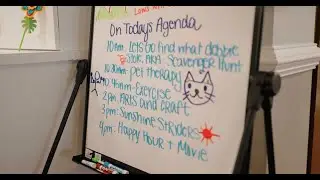 On Todays Agenda
10am: Lets Go find what debbie
Stole AKA Scavenger Hunt
10:30am: pet therapy
10:45am - Exercise
2pm: Arts and craft
3pm: Sunshine Striders
4pm: Happy Hour + Movie